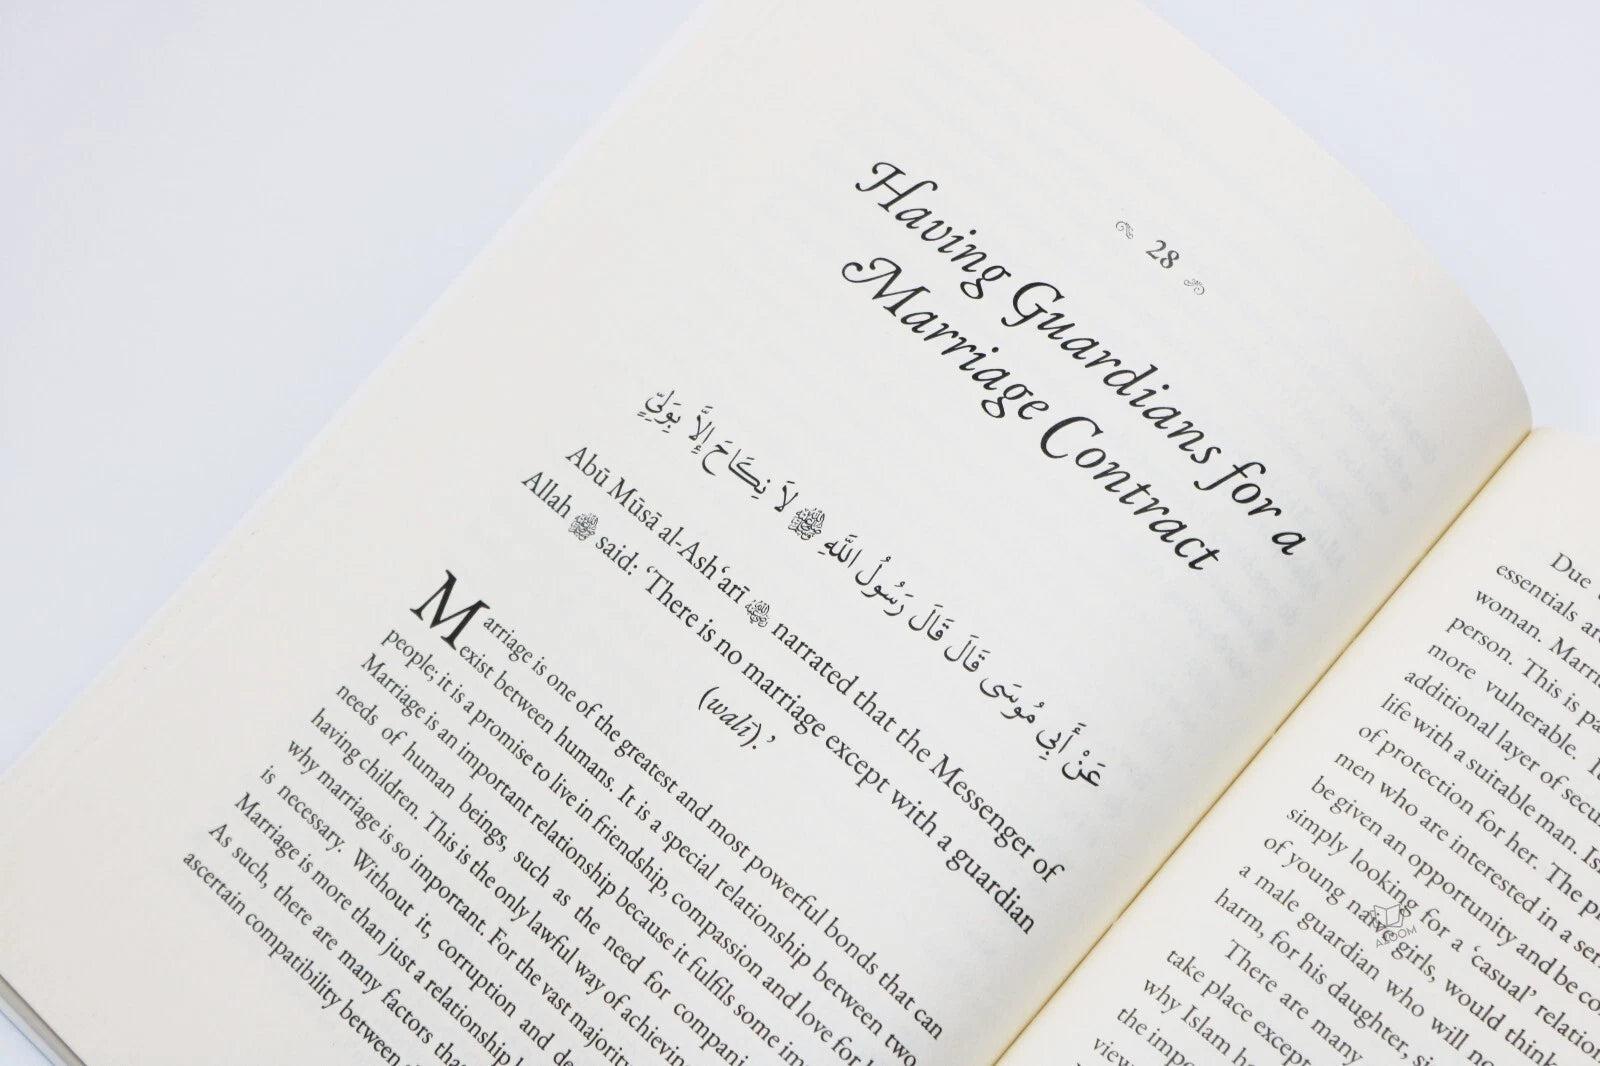 28
Having Guardians for a
Marriage Contract
عَنْ أَبِي مُوسَى قَالَ قَالَ رَسُولُ اللَّهِ ﷺ لاَ نِكَاحَ إِلاَّ بِوَلِيٍّ
Abū Mūsā al-Ash‘arī narrated that the Messenger of
Allah ﷺ said: ‘There is no marriage except with a guardian
(walī).’
Marriage is one of the greatest and most powerful bonds that can
exist between humans. It is a special relationship between two
people; it is a promise to live in friendship, compassion and love for
Marriage is an important relationship because it fulfils some
needs of human beings, such as the need for
having children. This is the only lawful way of achieving
why marriage is so important. For the vast majority
is necessary. Without it, corruption and
Marriage is more than just a relationship
As such, there are many factors
ascertain compatibility between
Due
essentials
woman.
person. This is
more vulnerable.
additional layer of
life with a suitable man.
of protection for her. The
men who are interested in a
be given an opportunity and be
simply looking for a ‘casual’
of young naive girls, would
a male guardian who will
harm, for his daughter,
There are many
take place except
why Islam
the
AZOOM